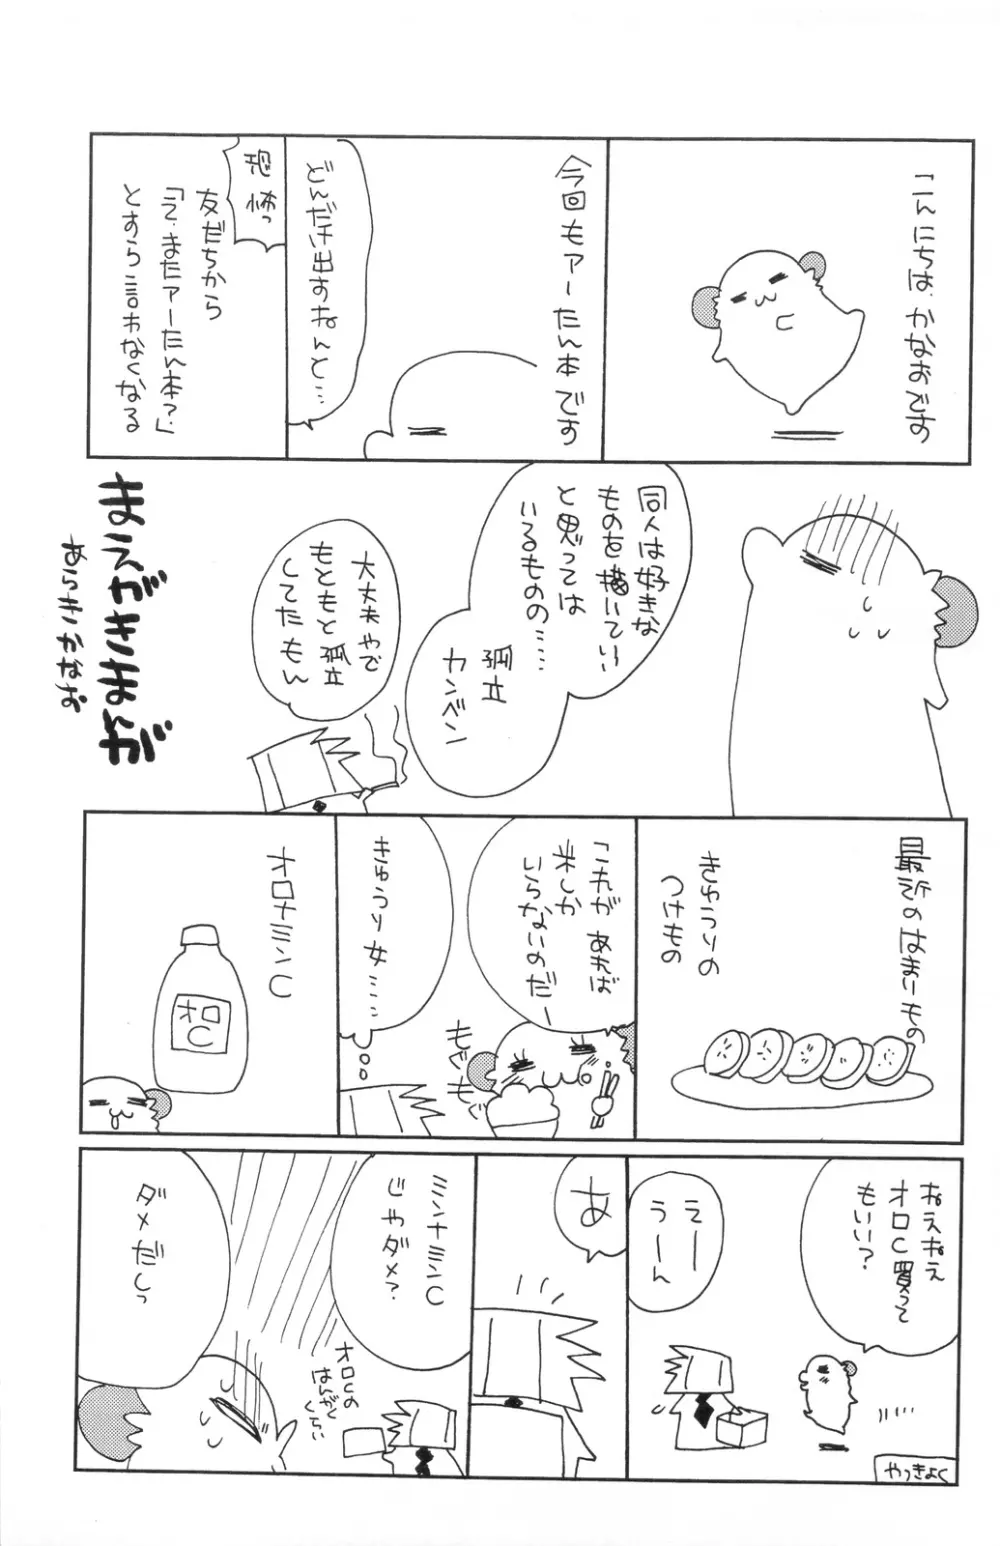 こんにちは、かなおです
今回もアーたん本です
どんだけ出すねんと…
恐怖っ
友だちから
「え、またアーたん本？」
とすら言われなくなる
同人は好きな
ものを描いていい
と思っては
いるものの……
孤立
カンベン
大丈夫やで
もともと孤立
してたもん
まえがきまんが
あらきかなお
最近のはまりもの
きゅうりの
つけもの
これがあれば
米しか
いらないのだー
もぐもぐ
きゅうり女……
オロナミンC
オロ
C
ねえねえ
オロC買って
もいい？
えー
うーん
やっきょく
あ
ミンナミンC
じゃダメ？
オロCの
はんがく
くらい
ダメだしっ